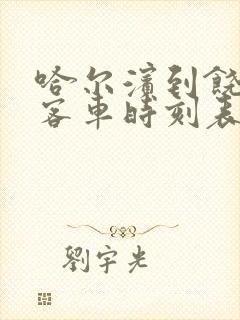 哈尔滨到饶
客车时刻表
劉宇光